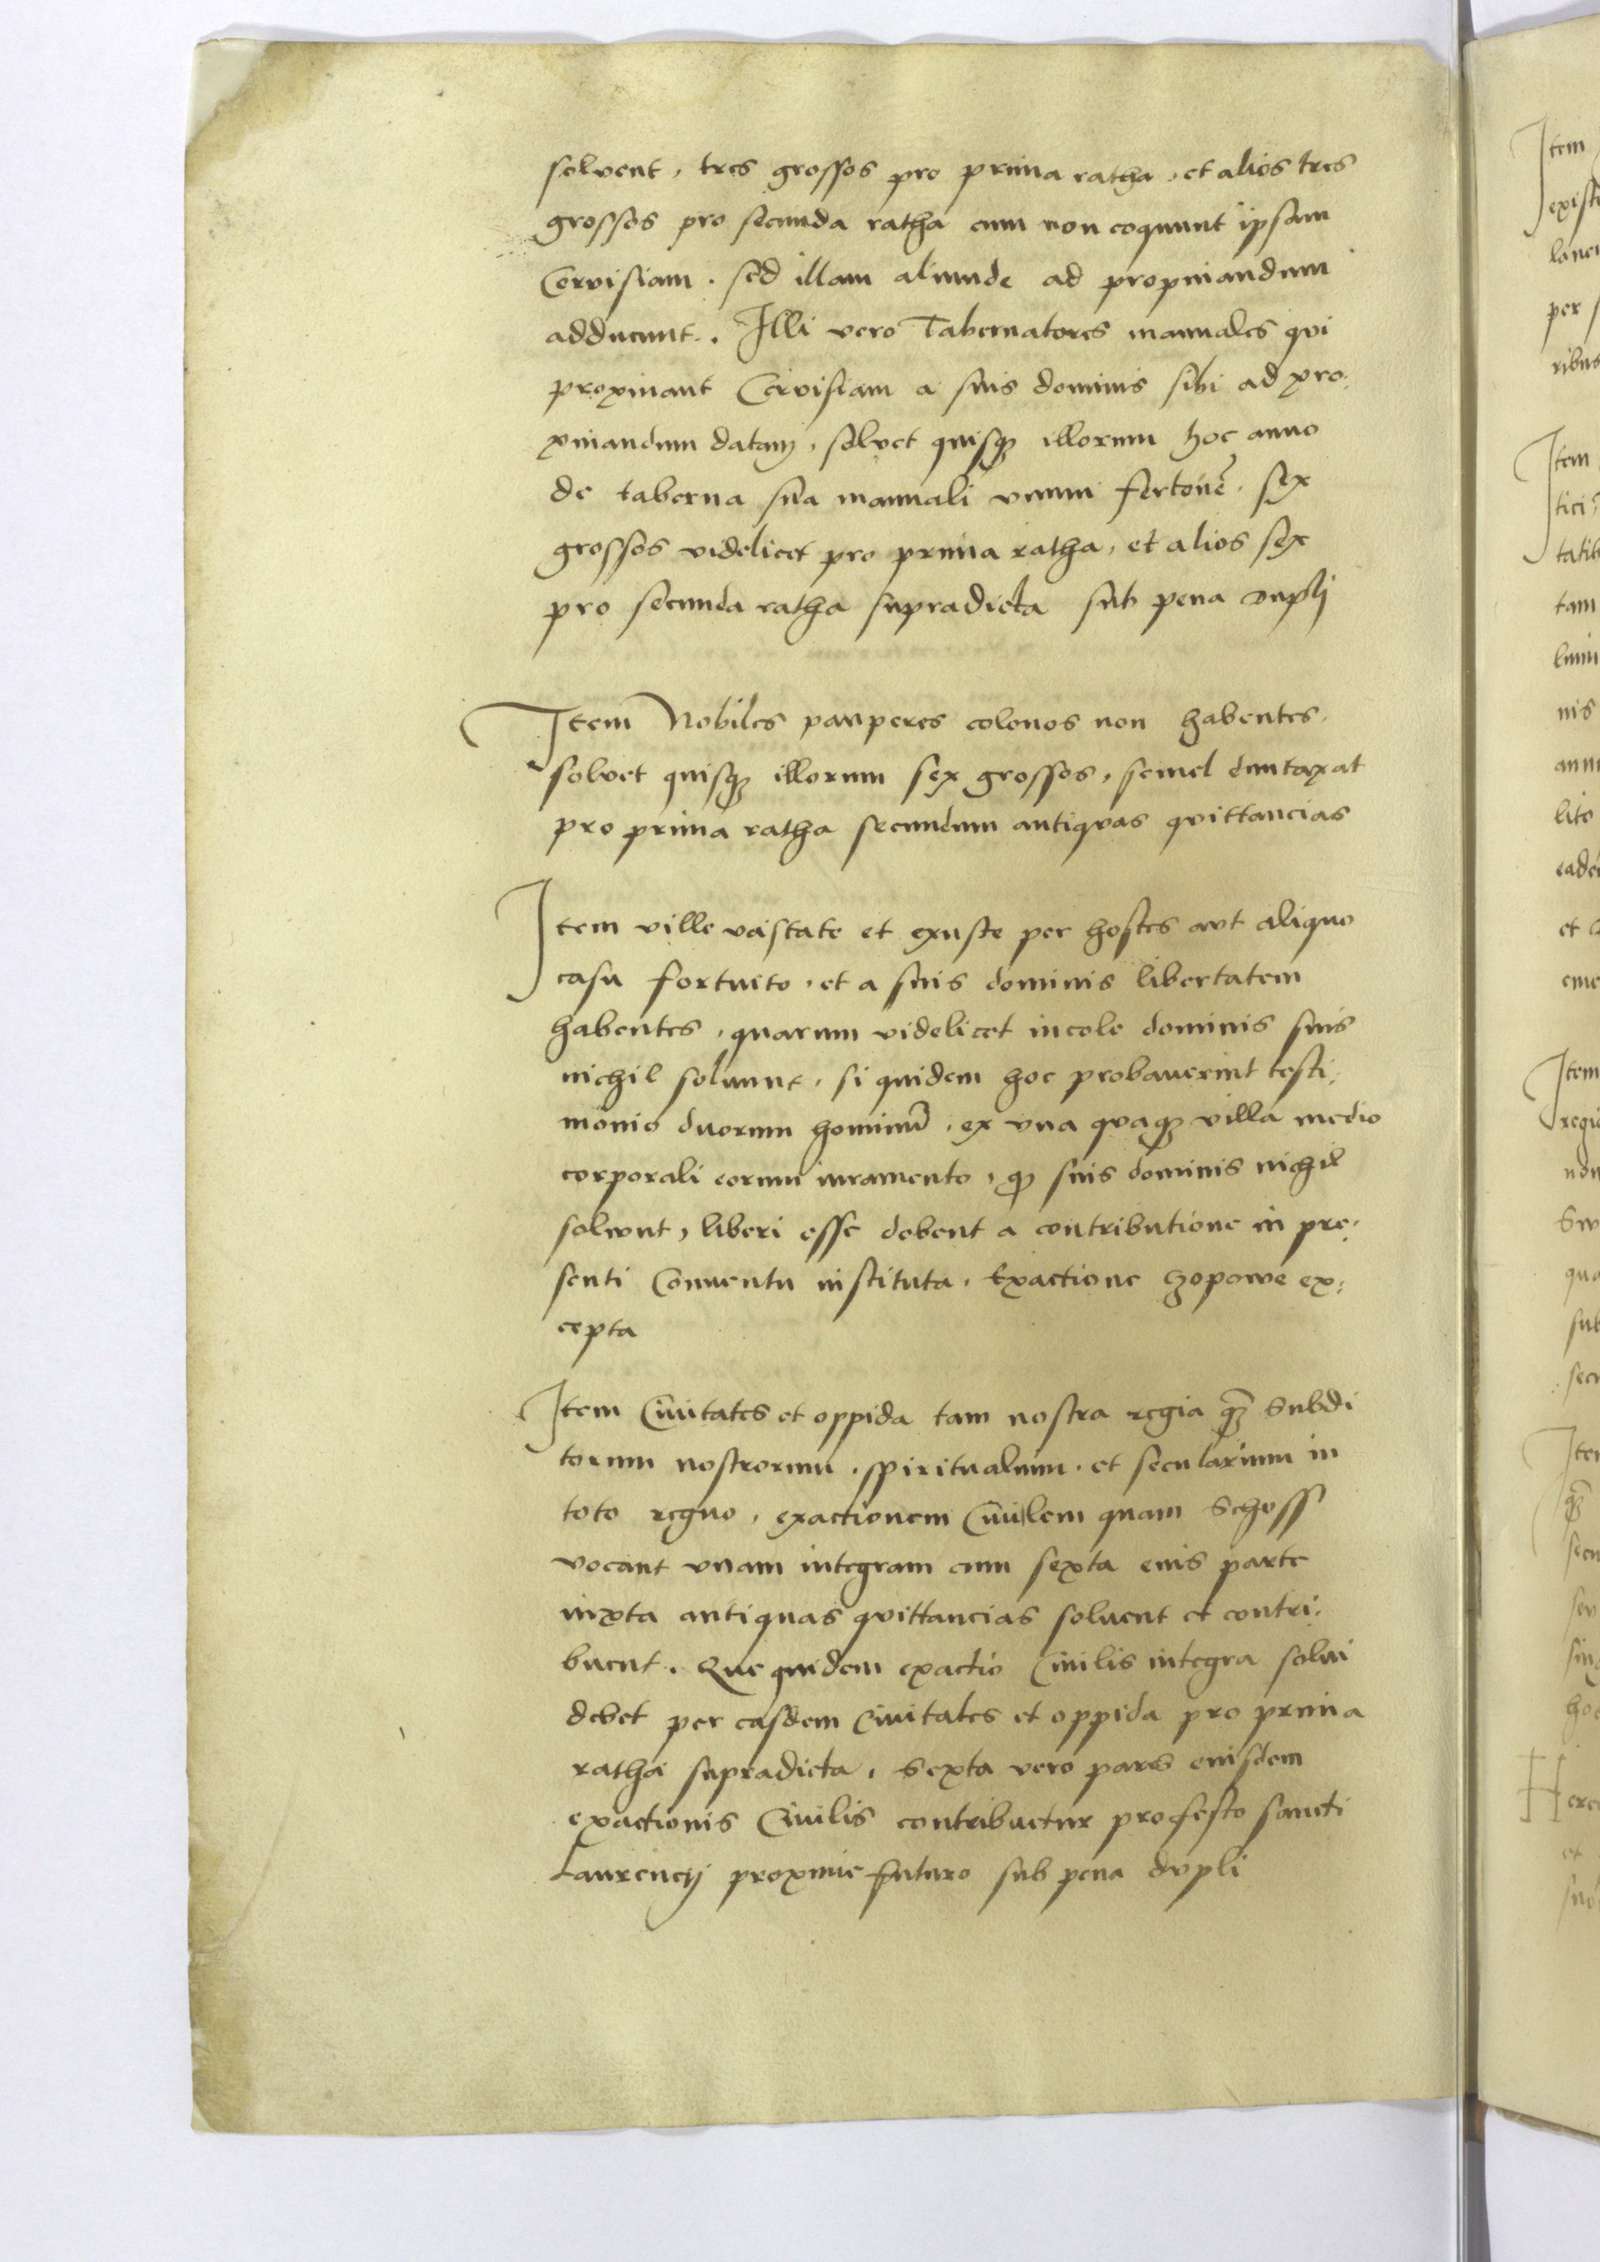 solvent, tres grossos pro prima ratha, et alios tres
grossos pro secunda ratha cum non coquunt ipsam
Cervisiam. sed illam aliunde ad propinandum
adducunt. Illi vero Tabernatores manuales qui
propinant Cervisiam a suis dominis sibi ad pro:
pinandum datam, solvet quisqꝫ illorum hoc anno
de taberna sua manuali vnum fertonē. sex
grossos videlicet pro prima ratha, et alios sex
pro secunda ratha supradicta sub pena dupli
Item Nobiles pauperes colonos non habentes,
solvet quisqꝫ illorum sex grossos, semel duntaxat
pro prima ratha secundum antiquas quittancias
Item ville vastate et exuste per hostes aut aliquo
casu fortuito, et a suis dominis libertatem
habentes, quarum videlicet incole dominis suis
nichil soluunt, si quidem hoc probauerint testi:
monio duorum hominū. ex vna quaqꝫ villa medio
corporali eorum iuramento, ꝙ suis dominis nichil
solvunt, liberi esse debent a contributione in pre:
senti Conuentu instituta, Exactione czopowe ex:
cepta
Item Ciuitates et oppida tam nostra regia qꝫ Subdi
torum nostrorum. spiritualium. et secularium in
toto regno, exactionem Ciuilem quam Schoss
vocant vnam integram cum sexta eius parte
iuxta antiquas quittancias soluent et contri:
buent. Que quidem exactio Ciuilis integra solui
debet per easdem Ciuitates et oppida pro prima
ratha supradicta, Sexta vero pars eiusdem
exactionis Ciuilis contribuetur pro festo sancti
Laurencij proxime futuro sub pena dupli